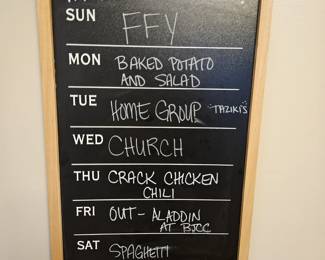 SUN
FFY
MON
BAKED POTATO
AND SALAD
TUE
HOME GROUP - TAZIKI'S
WED
CHURCH
THU
CRACK CHICKEN
CHILI
FRI
OUT - ALADDIN
AT BJCC
SAT
SPAGHETTI